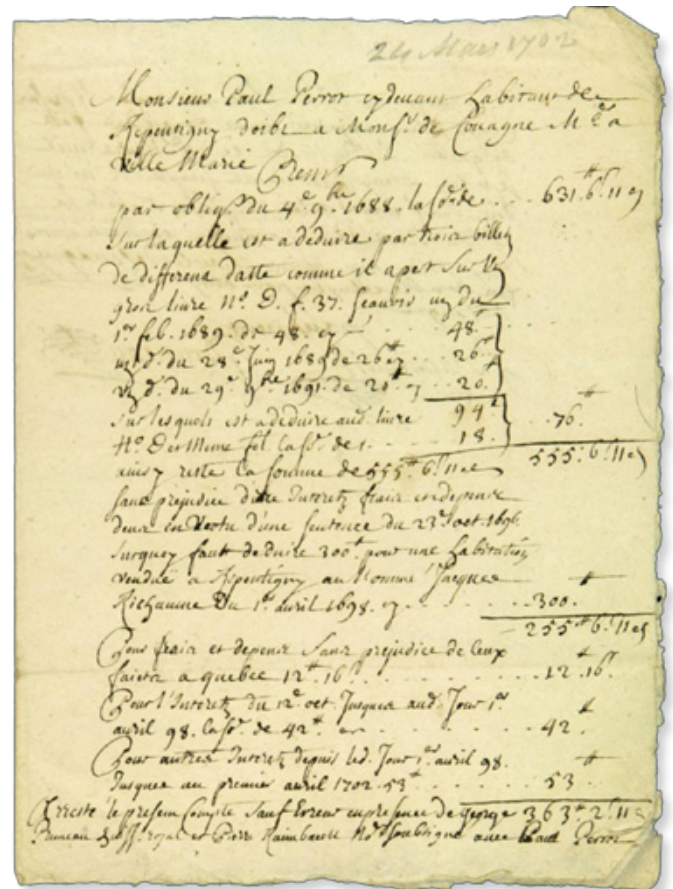 24 Mars 1702
Monsieur Paul Perrot cydevant habitant de
Repentigny doibt a Monsr. de Couagne Md. a
Ville Marie
par oblig. du 4e. 9bre. 1688. la so. de . . . 631.tt 6.s 11 d
sur laquelle est a deduire par trois billets
de differens datte comme il apert sur
gros livre No. D. f. 37. scavoir un du
1er feb. 1689. de 48. . . . 48.
un d. du 28e Juin 1689 de 26tt . . . 26.
un d. du 29e. 9bre 1691. de 20tt . . 20.
sur lesquels est a deduire aud. livre 94tt . . 76.tt
No. D et Meme fol. la so. de . . . 18.
reste la somme de 555tt 6.s 11 d 555. 6.s 11 d
sans prejudice Interetz frais et depens
deus en Vertu d'une sentence du 23e oct 1696.
surquoy faut deduire 300tt pour une habitation
vendue a Repentigny au Nomme Jacques
Richaume Du 1er avril 1698. . . . 300.tt
255tt 6.s 11 d
Pour frais et depens sans prejudice de Ceux
faicts a quebec 12tt 16s . . . 12.tt 16.s
Pour l'Interetz du 12e oct. Jusques aud. Jour 1er
avril 98. la so. de 42tt . . . 42.tt
Pour autres Interetz depuis led. Jour 1er avril 98.
Jusques au premier avril 1702. 53tt . . . 53.tt
Arreste le present Compte sauf Erreur en presence de george 363tt 2.s 11 d
Pruneau royal et Pierre Raimbault No. soubsigné avec Paul Perrot